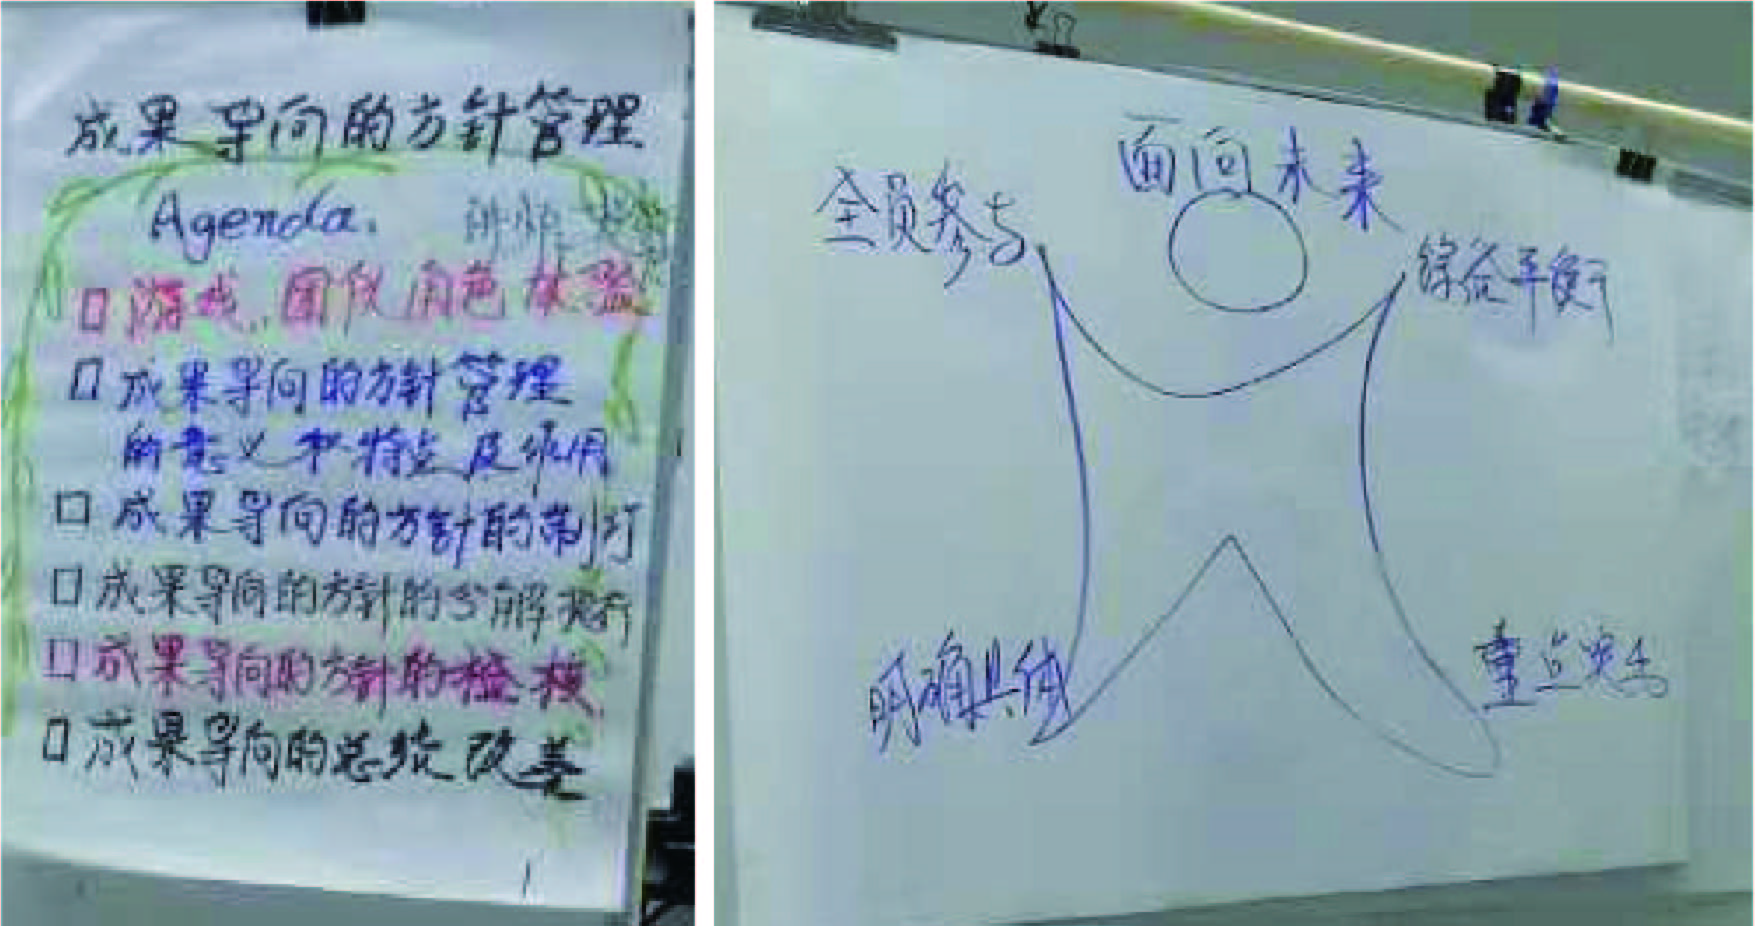 成果导向的方针管理
Agenda.
□ 游戏.团队角色体验
□ 成果导向的方针管理
的意义和特点及作用
□ 成果导向的方针的制订
□ 成果导向的方针的分解执行
□ 成果导向的方针的检核
□ 成果导向的总结改善
面向未来
全员参与
综合平衡
明确具体
重点突出